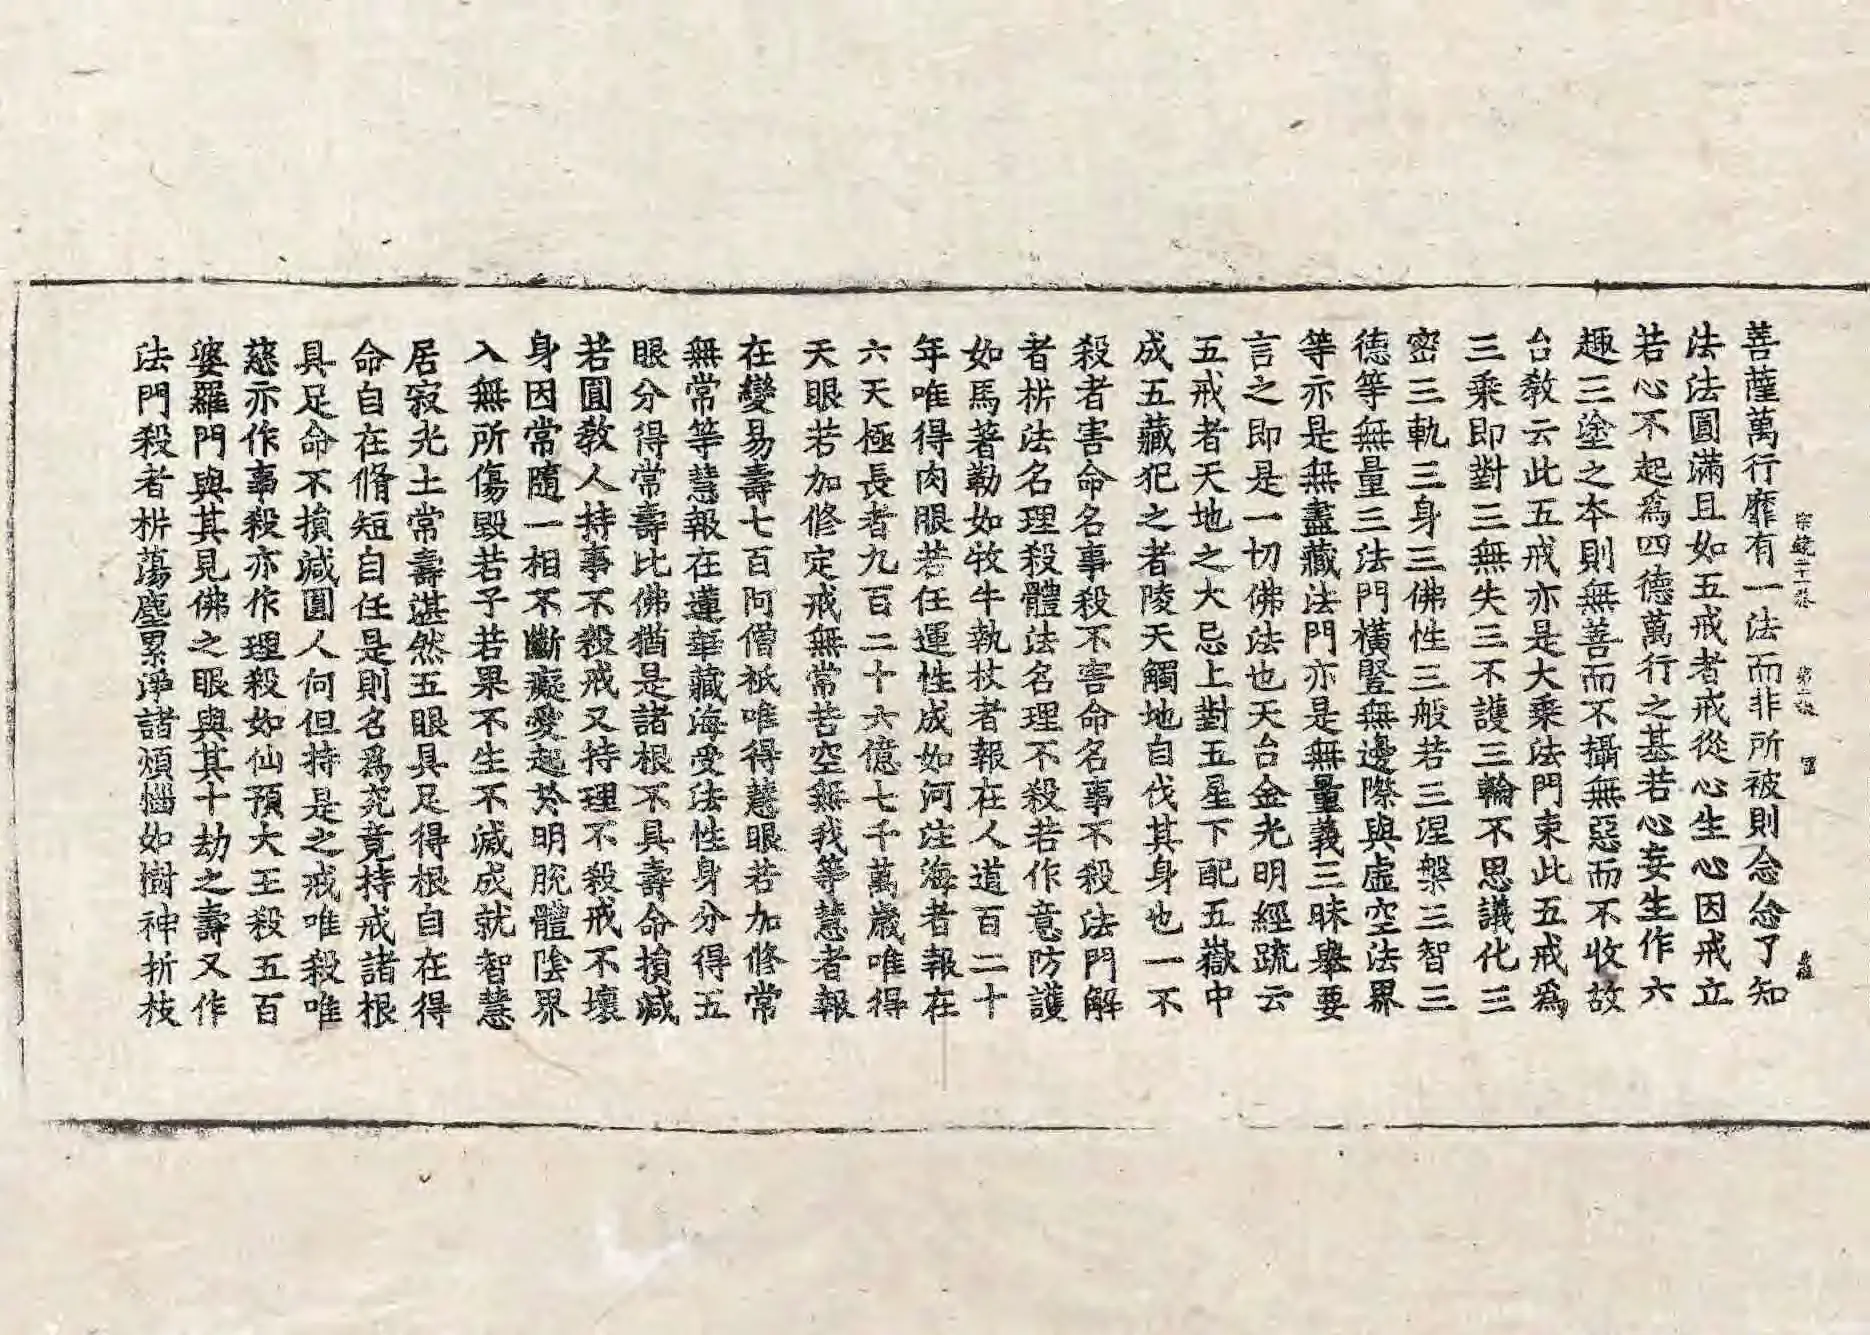 宗鏡二十一 第二張
菩薩萬行靡有一法而非所被則念念了知
法法圓滿且如五戒者戒從心生心因戒立
若心不起爲四德萬行之基若心妄生作六
趣三塗之本則無善而不攝無惡而不收故
台教云此五戒亦是大乘法門束此五戒爲
三乘即對三無失三不護三輪不思議化三
密三軌三身三佛性三般若三涅槃三智三
德等無量三法門橫豎無邊際與虛空法界
等亦是無盡藏法門亦是無量義三昧舉要
言之即是一切佛法也天台金光明經疏云
五戒者天地之大忌上對五星下配五嶽中
成五藏犯之者陵天觸地自伐其身也一不
殺者害命名事殺不害命名事不殺法門解
者析法名理殺體法名理不殺若作意防護
如馬著勒如牧牛執杖者報在人道百二十
年唯得肉眼若任運性成如河注海者報在
六天極長者九百二十六億七千萬歲唯得
天眼若加修定戒無常苦空無我等慧者報
在變易壽七百阿僧祇唯得慧眼若加修常
無常等慧報在蓮華藏海受法性身分得五
眼分得常壽比佛猶是諸根不具壽命損減
若圓教人持事不殺戒又持理不殺戒不壞
身因常隨一相不斷癡愛起於明脫體陰界
入無所傷毀若子若果不生不滅成就智慧
居寂光土常壽湛然五眼具足得根自在得
命自在脩短自任是則名爲究竟持戒諸根
具足命不損減圓人何但持是之戒唯殺唯
慈亦作事殺亦作理殺如仙預大王殺五百
婆羅門與其見佛之眼與其十劫之壽又作
法門殺者析蕩塵累淨諸煩惱如樹神折枝